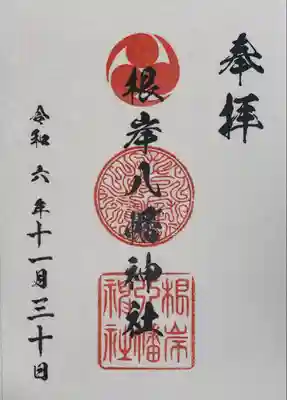 奉拝
根岸八幡神社
令和六年十一月三十日
根岸
八幡
神社